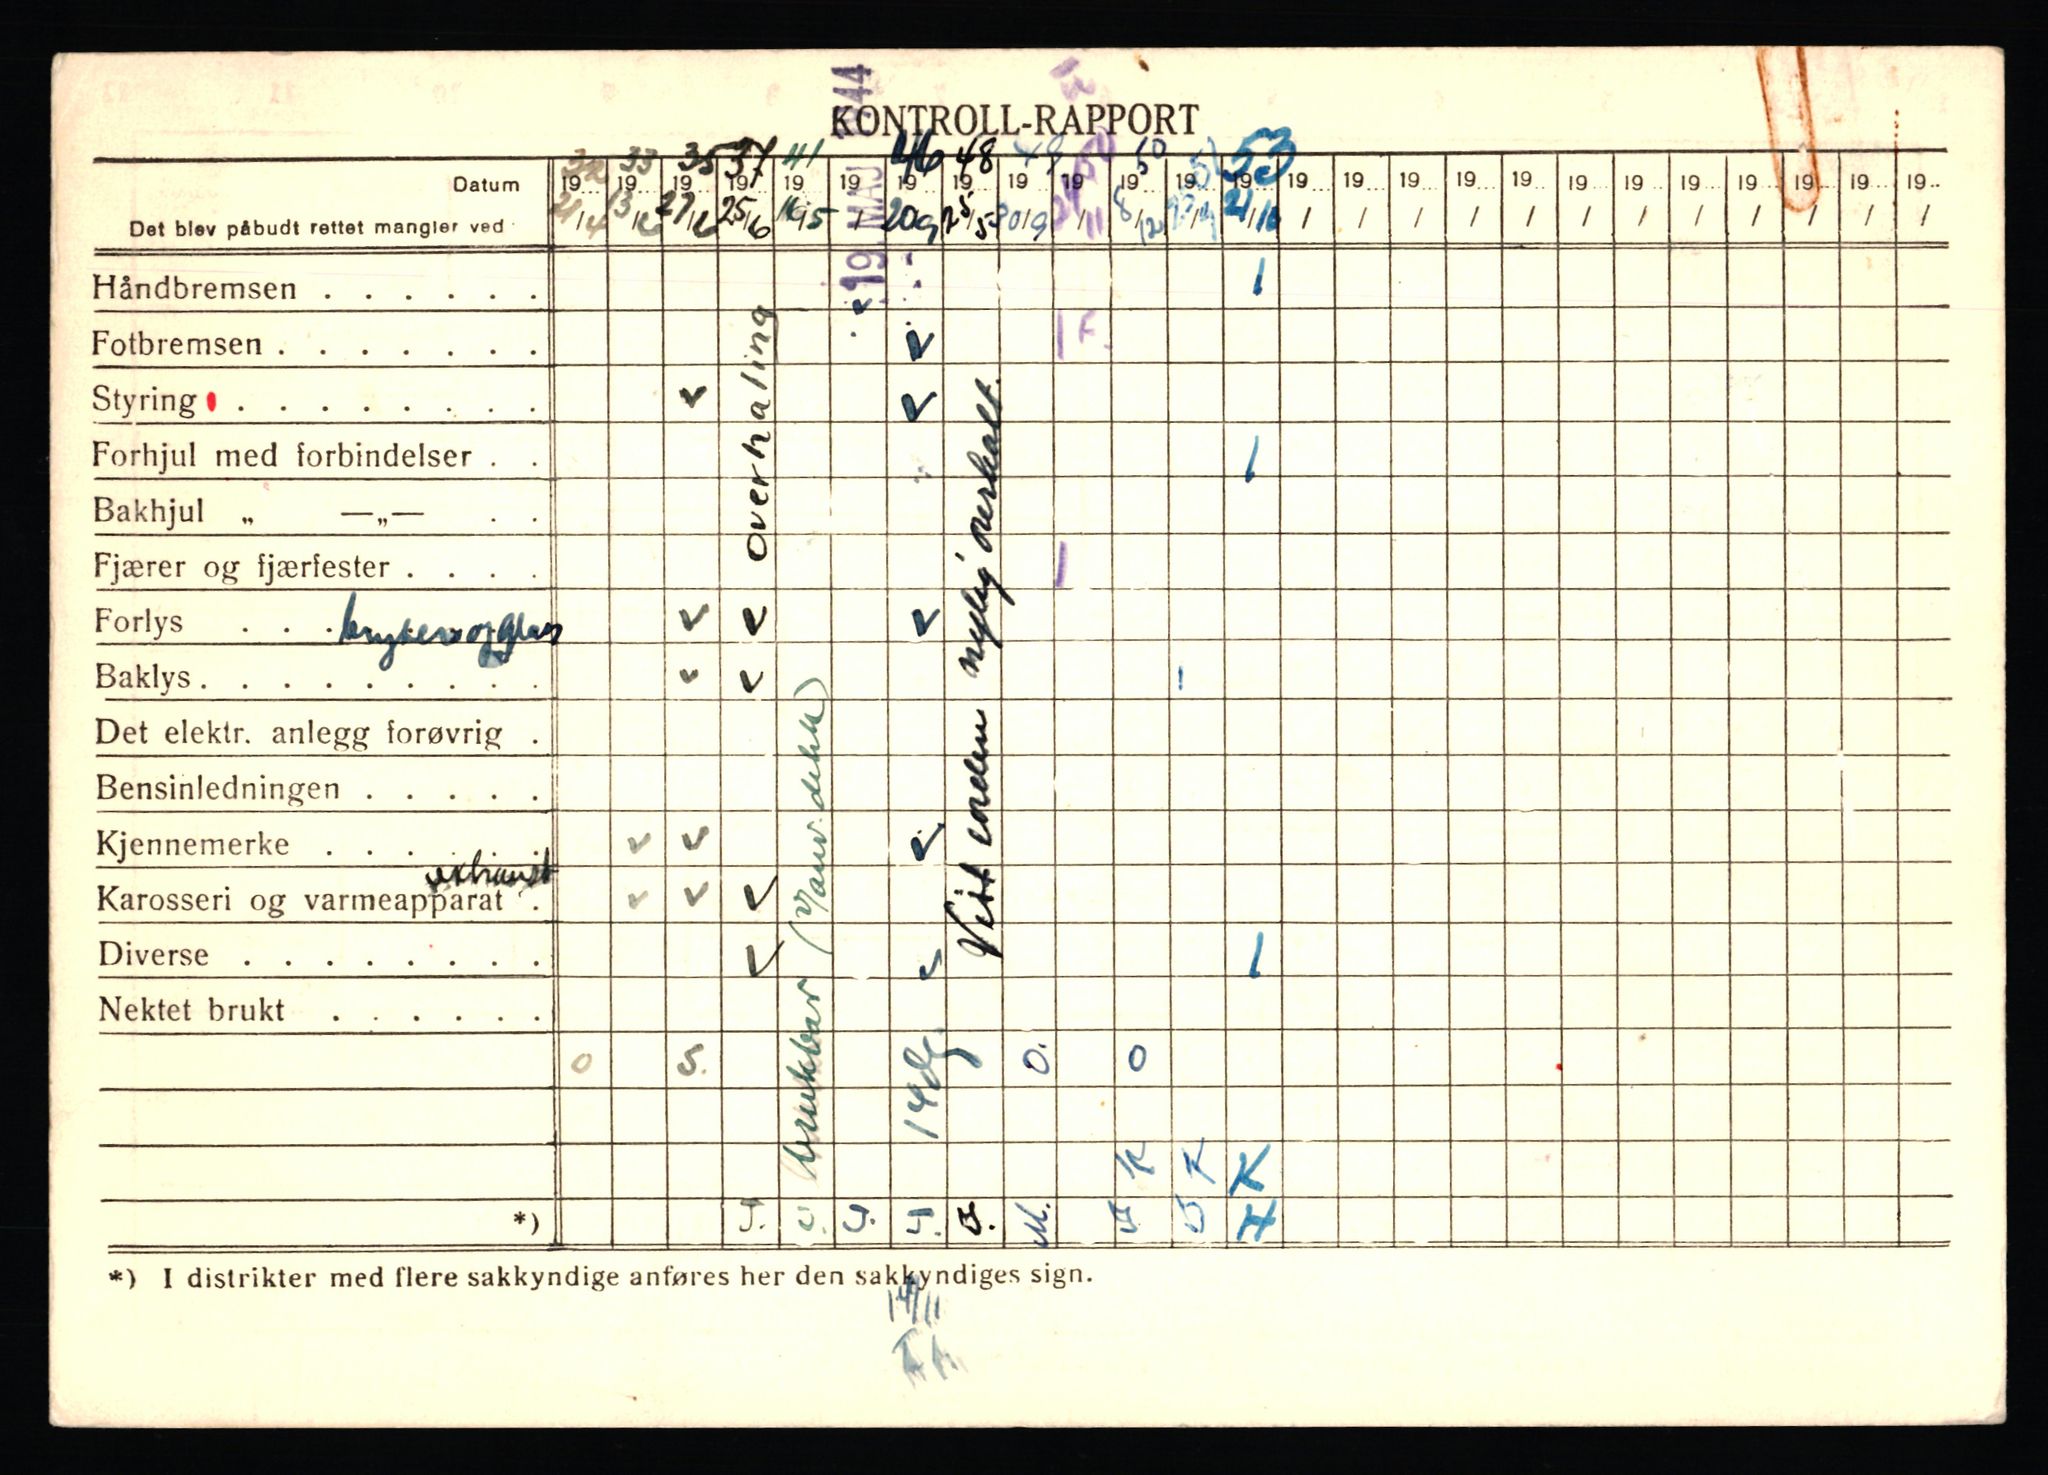 KONTROLL-RAPPORT
19 MAJ 1944
Datum 19 32 19 33 19 35 19 37 19 41 19 19 46 19 48 19 49 19 50 19 50 19 51 19 53 19 19 19 19 19 19 19 19 19 19 19 19
Det blev påbudt rettet mangler ved 21/4 13/6 27/6 25/6 16/5 / 20/9 25/5 30/9 /11 8/12 / 21/10 / / / / / / / / / / / /
Håndbremsen . . . . . . 1
Fotbremsen . . . . . . . ✓ 1 F.
Styring . . . . . . . . ✓ ✓
Forhjul med forbindelser . . 1
Bakhjul „ —„— . .
Fjærer og fjærfester . . . . 1
Forlys . . . brytere og glass ✓ ✓ ✓
Baklys . . . . . . . . . ✓ ✓ 1
Det elektr. anlegg forøvrig .
Bensinledningen . . . . .
Kjennemerke . . . . . . ✓ ✓ ✓
exhaust
Karosseri og varmeapparat . ✓ ✓ ✓
Diverse . . . . . . . . ✓ ✓ 1
Nektet brukt . . . . . .
overhaling
brukbar
Vist i orden nylig overhalt.
0 S. 14 dg. 0. 0
K K K
*) J. J. J. J. B. M.
*) I distrikter med flere sakkyndige anføres her den sakkyndiges sign.
14/11